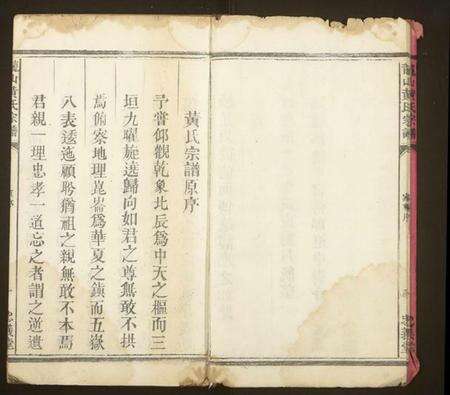 龍山黃氏宗譜
忠義堂
黃氏宗譜原序
予嘗仰觀乾象北辰爲中天之樞而三
垣九曜旋遶歸向如君之尊無敢不拱
焉俯察地理崑崙爲華夏之鎮而五嶽
八表逶迤顧盼猶祖之親無敢不本焉
君親一理忠孝一道忘之者謂之逆遺
龍山黃氏宗譜
忠義堂